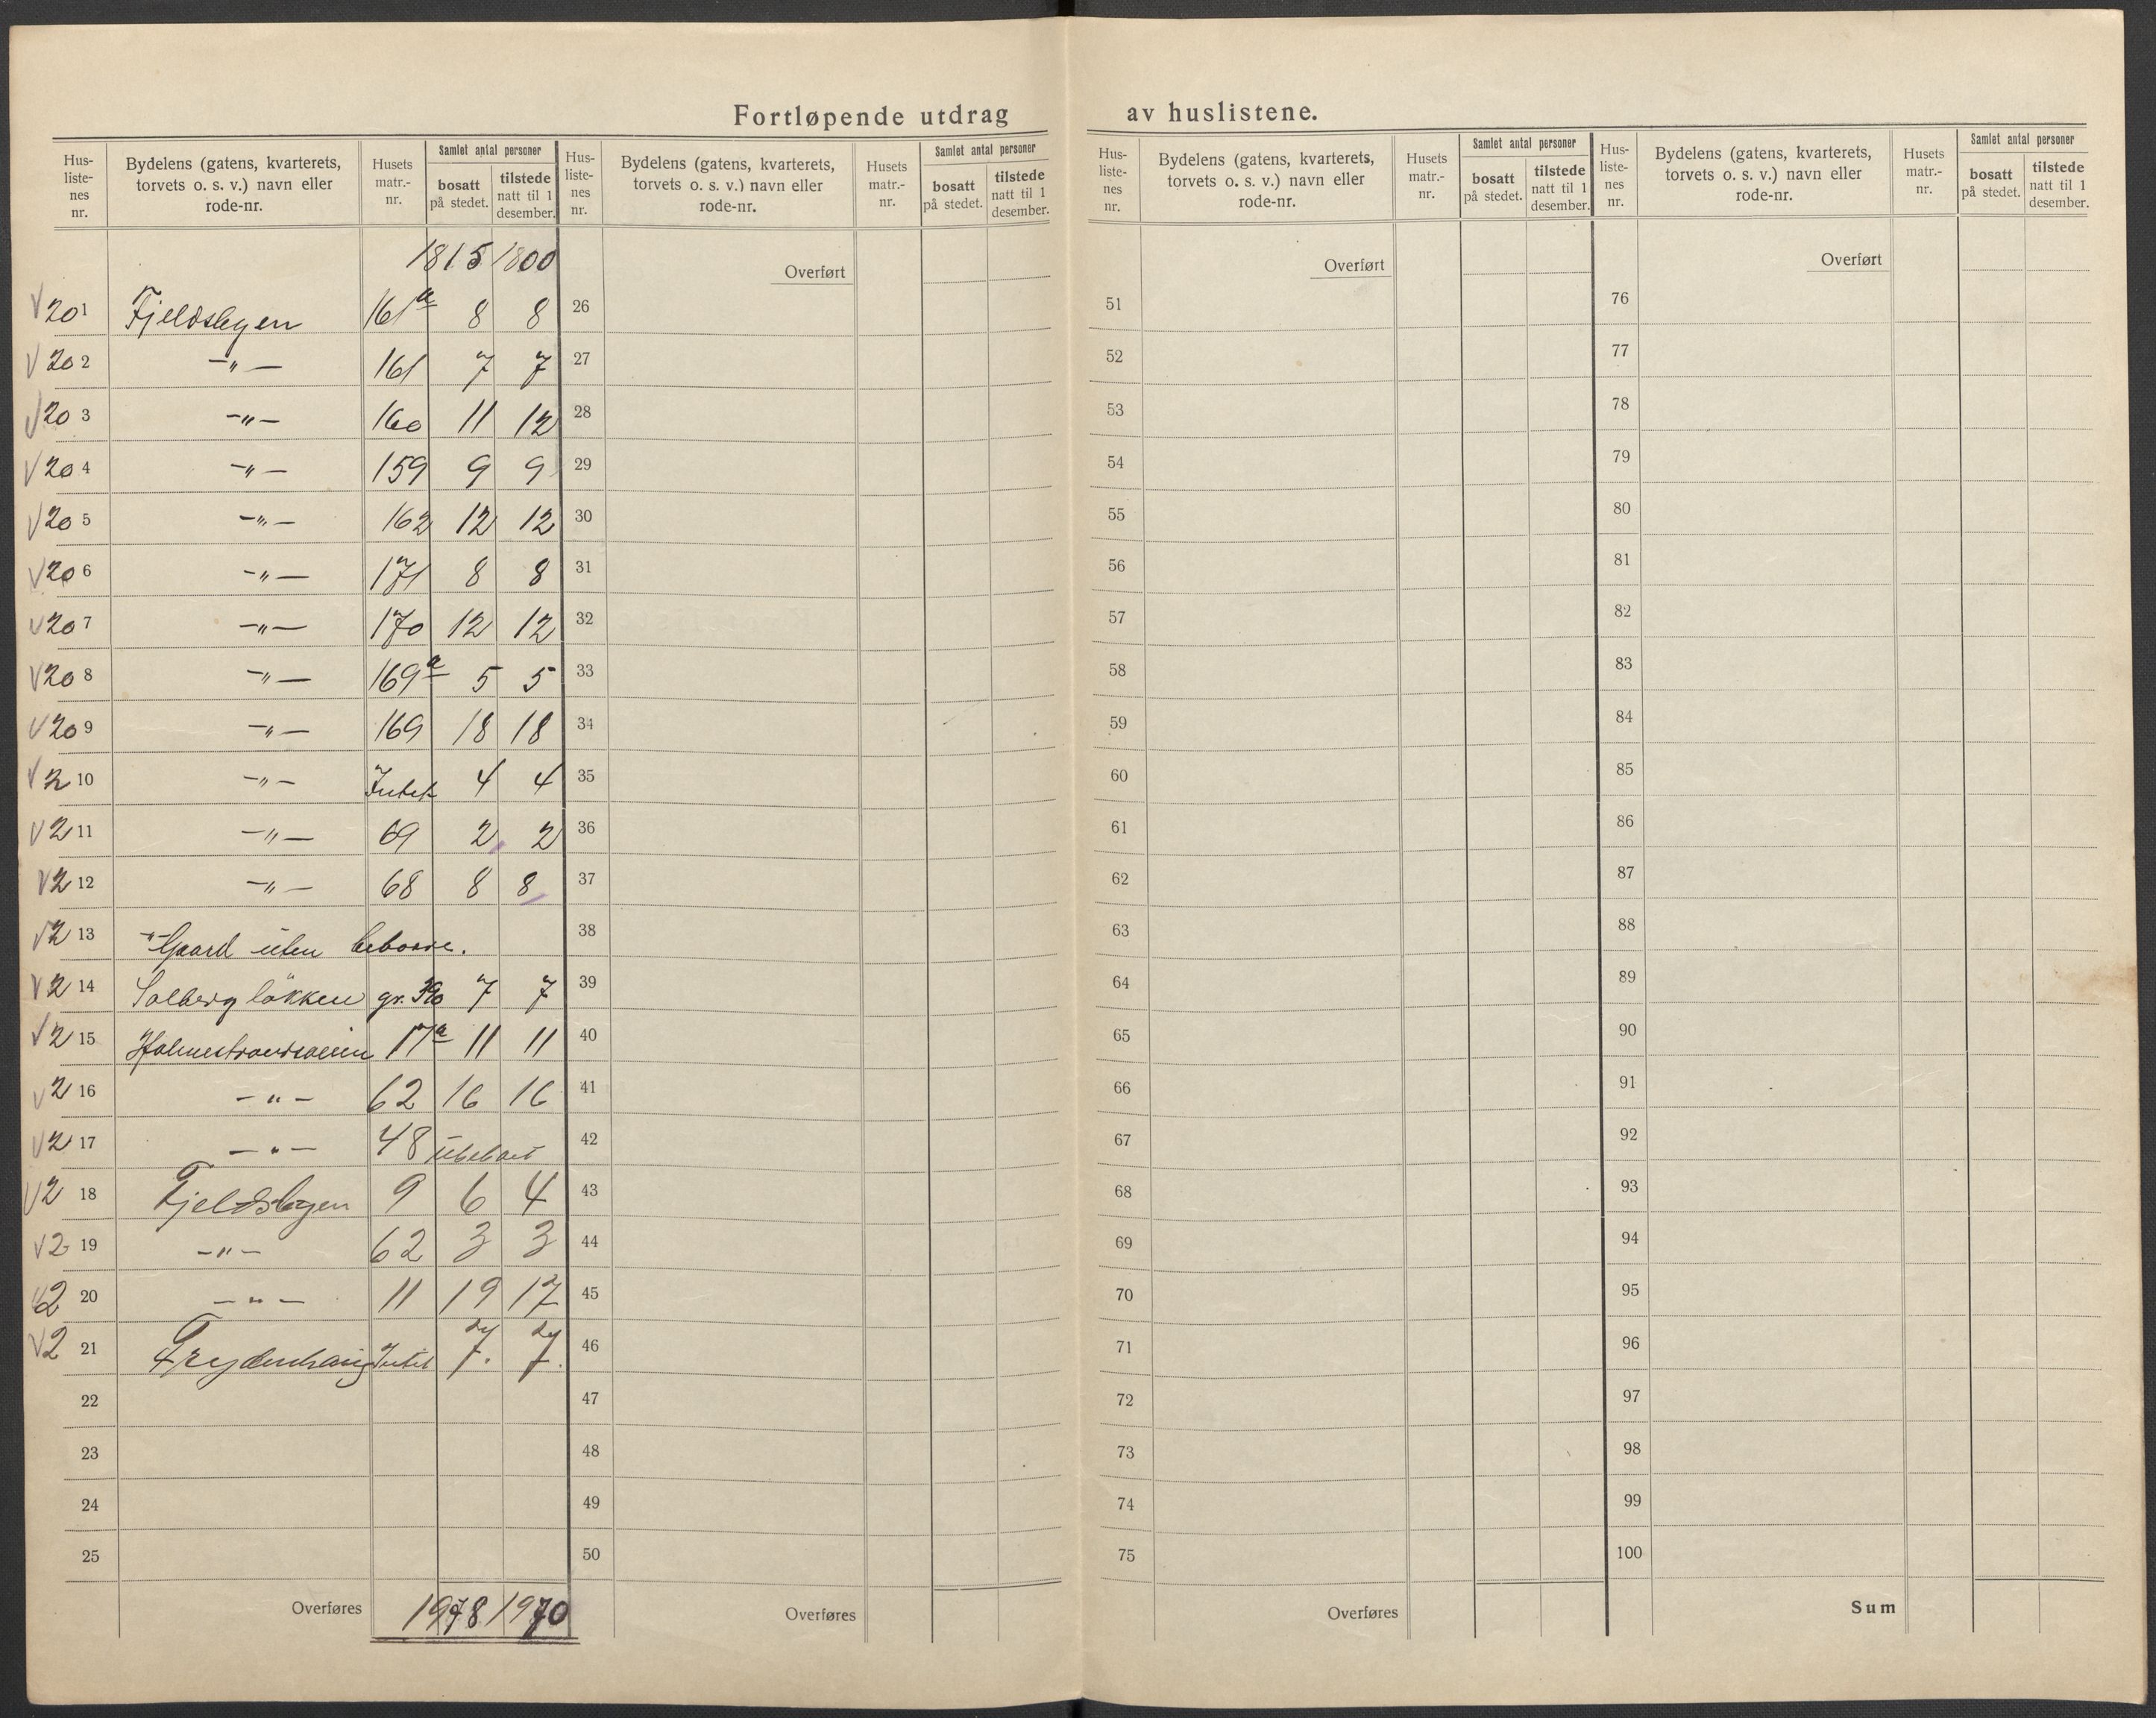 Fortløpende utdrag av huslistene.
Hus-listenes nr. Bydelens (gatens, kvarterets, torvets o. s. v.) navn eller rode-nr. Husets matr.-nr. Samlet antal personer bosatt på stedet. tilstede natt til 1 desember.
1815 1800
V 201 Fjeldsbyen 161a 8 8
V 202 -"- 161 7 7
V 203 -"- 160 11 12
V 204 -"- 159 9 9
V 205 -"- 162 12 12
V 206 -"- 171 8 8
V 207 -"- 170 12 12
V 208 -"- 169a 5 5
V 209 -"- 169 18 18
V 210 -"- Intet 4 4
V 211 -"- 69 2 2
V 212 -"- 68 8 8
V 213 -"- Gaard uten beboere.
V 214 Solberg løkken gr. 390 7 7
V 215 Holmestrandsveien 17a 11 11
V 216 -"- 62 16 16
V 217 -"- 48 ubeboet
V 218 Fjeldsbyen 9 6 4
V 219 -"- 62 3 3
V 220 -"- 11 19 17
V 221 Frydenhaug Intet 7. 7.
22
23
24
25
Overføres 1978 1970
Hus-listenes nr. Bydelens (gatens, kvarterets, torvets o. s. v.) navn eller rode-nr. Husets matr.-nr. Samlet antal personer bosatt på stedet. tilstede natt til 1 desember.
Overført
26
27
28
29
30
31
32
33
34
35
36
37
38
39
40
41
42
43
44
45
46
47
48
49
50
Overføres
Hus-listenes nr. Bydelens (gatens, kvarterets, torvets o. s. v.) navn eller rode-nr. Husets matr.-nr. Samlet antal personer bosatt på stedet. tilstede natt til 1 desember.
Overført
51
52
53
54
55
56
57
58
59
60
61
62
63
64
65
66
67
68
69
70
71
72
73
74
75
Overføres
Hus-listenes nr. Bydelens (gatens, kvarterets, torvets o. s. v.) navn eller rode-nr. Husets matr.-nr. Samlet antal personer bosatt på stedet. tilstede natt til 1 desember.
Overført
76
77
78
79
80
81
82
83
84
85
86
87
88
89
90
91
92
93
94
95
96
97
98
99
100
Sum